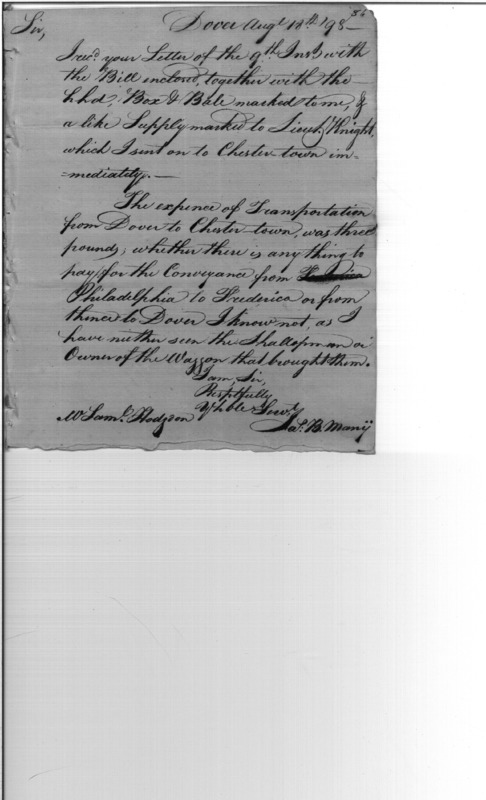 86
Dover Augt 18th '98 —
Sir,
I recd your Letter of the 9th Inst with
the Bill enclosed, together with the
hhd, Box & Bale marked to me, &
a like Supply marked to Lieut Knight,
which I sent on to Chester town im=
=mediately. —
The expence of Transportation
from Dover to Chester town, was three
pounds; whether there is any thing to
pay for the Conveyance from
Philadelphia to Frederica or from
thence to Dover I know not, as I
have neither seen the Shallopman or
Owner of the Waggon that brought them.
I am, Sir,
Respectfully
Yr hble Servt
Mr Saml Hodgson
Jas. B. Many